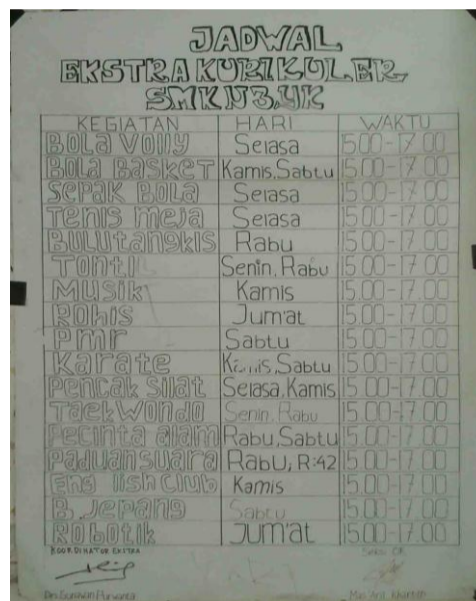 JADWAL
EKSTRAKURIKULER
SMKN3.YK
KEGIATAN HARI WAKTU
BOLA VOLLY Selasa 15.00-17.00
BOLA BASKET Kamis,Sabtu 15.00-17.00
SEPAK BOLA Selasa 15.00-17.00
Tenis meja Selasa 15.00-17.00
BULUtangkis Rabu 15.00-17.00
TONTI Senin, Rabu 15.00-17.00
MUSIK Kamis 15.00-17.00
ROHIS Jum'at 15.00-17.00
Pmr Sabtu 15.00-17.00
Karate Kamis,Sabtu 15.00-17.00
Pencak Silat Selasa,Kamis 15.00-17.00
TaekWondo Senin, Rabu 15.00-17.00
Pecinta alam Rabu,Sabtu 15.00-17.00
Paduan suara RabU, R:42 15.00-17.00
English Club Kamis 15.00-17.00
B. Jepang Sabtu 15.00-17.00
Robotik Jum'at 15.00-17.00
KOORDINATOR EKSTRA